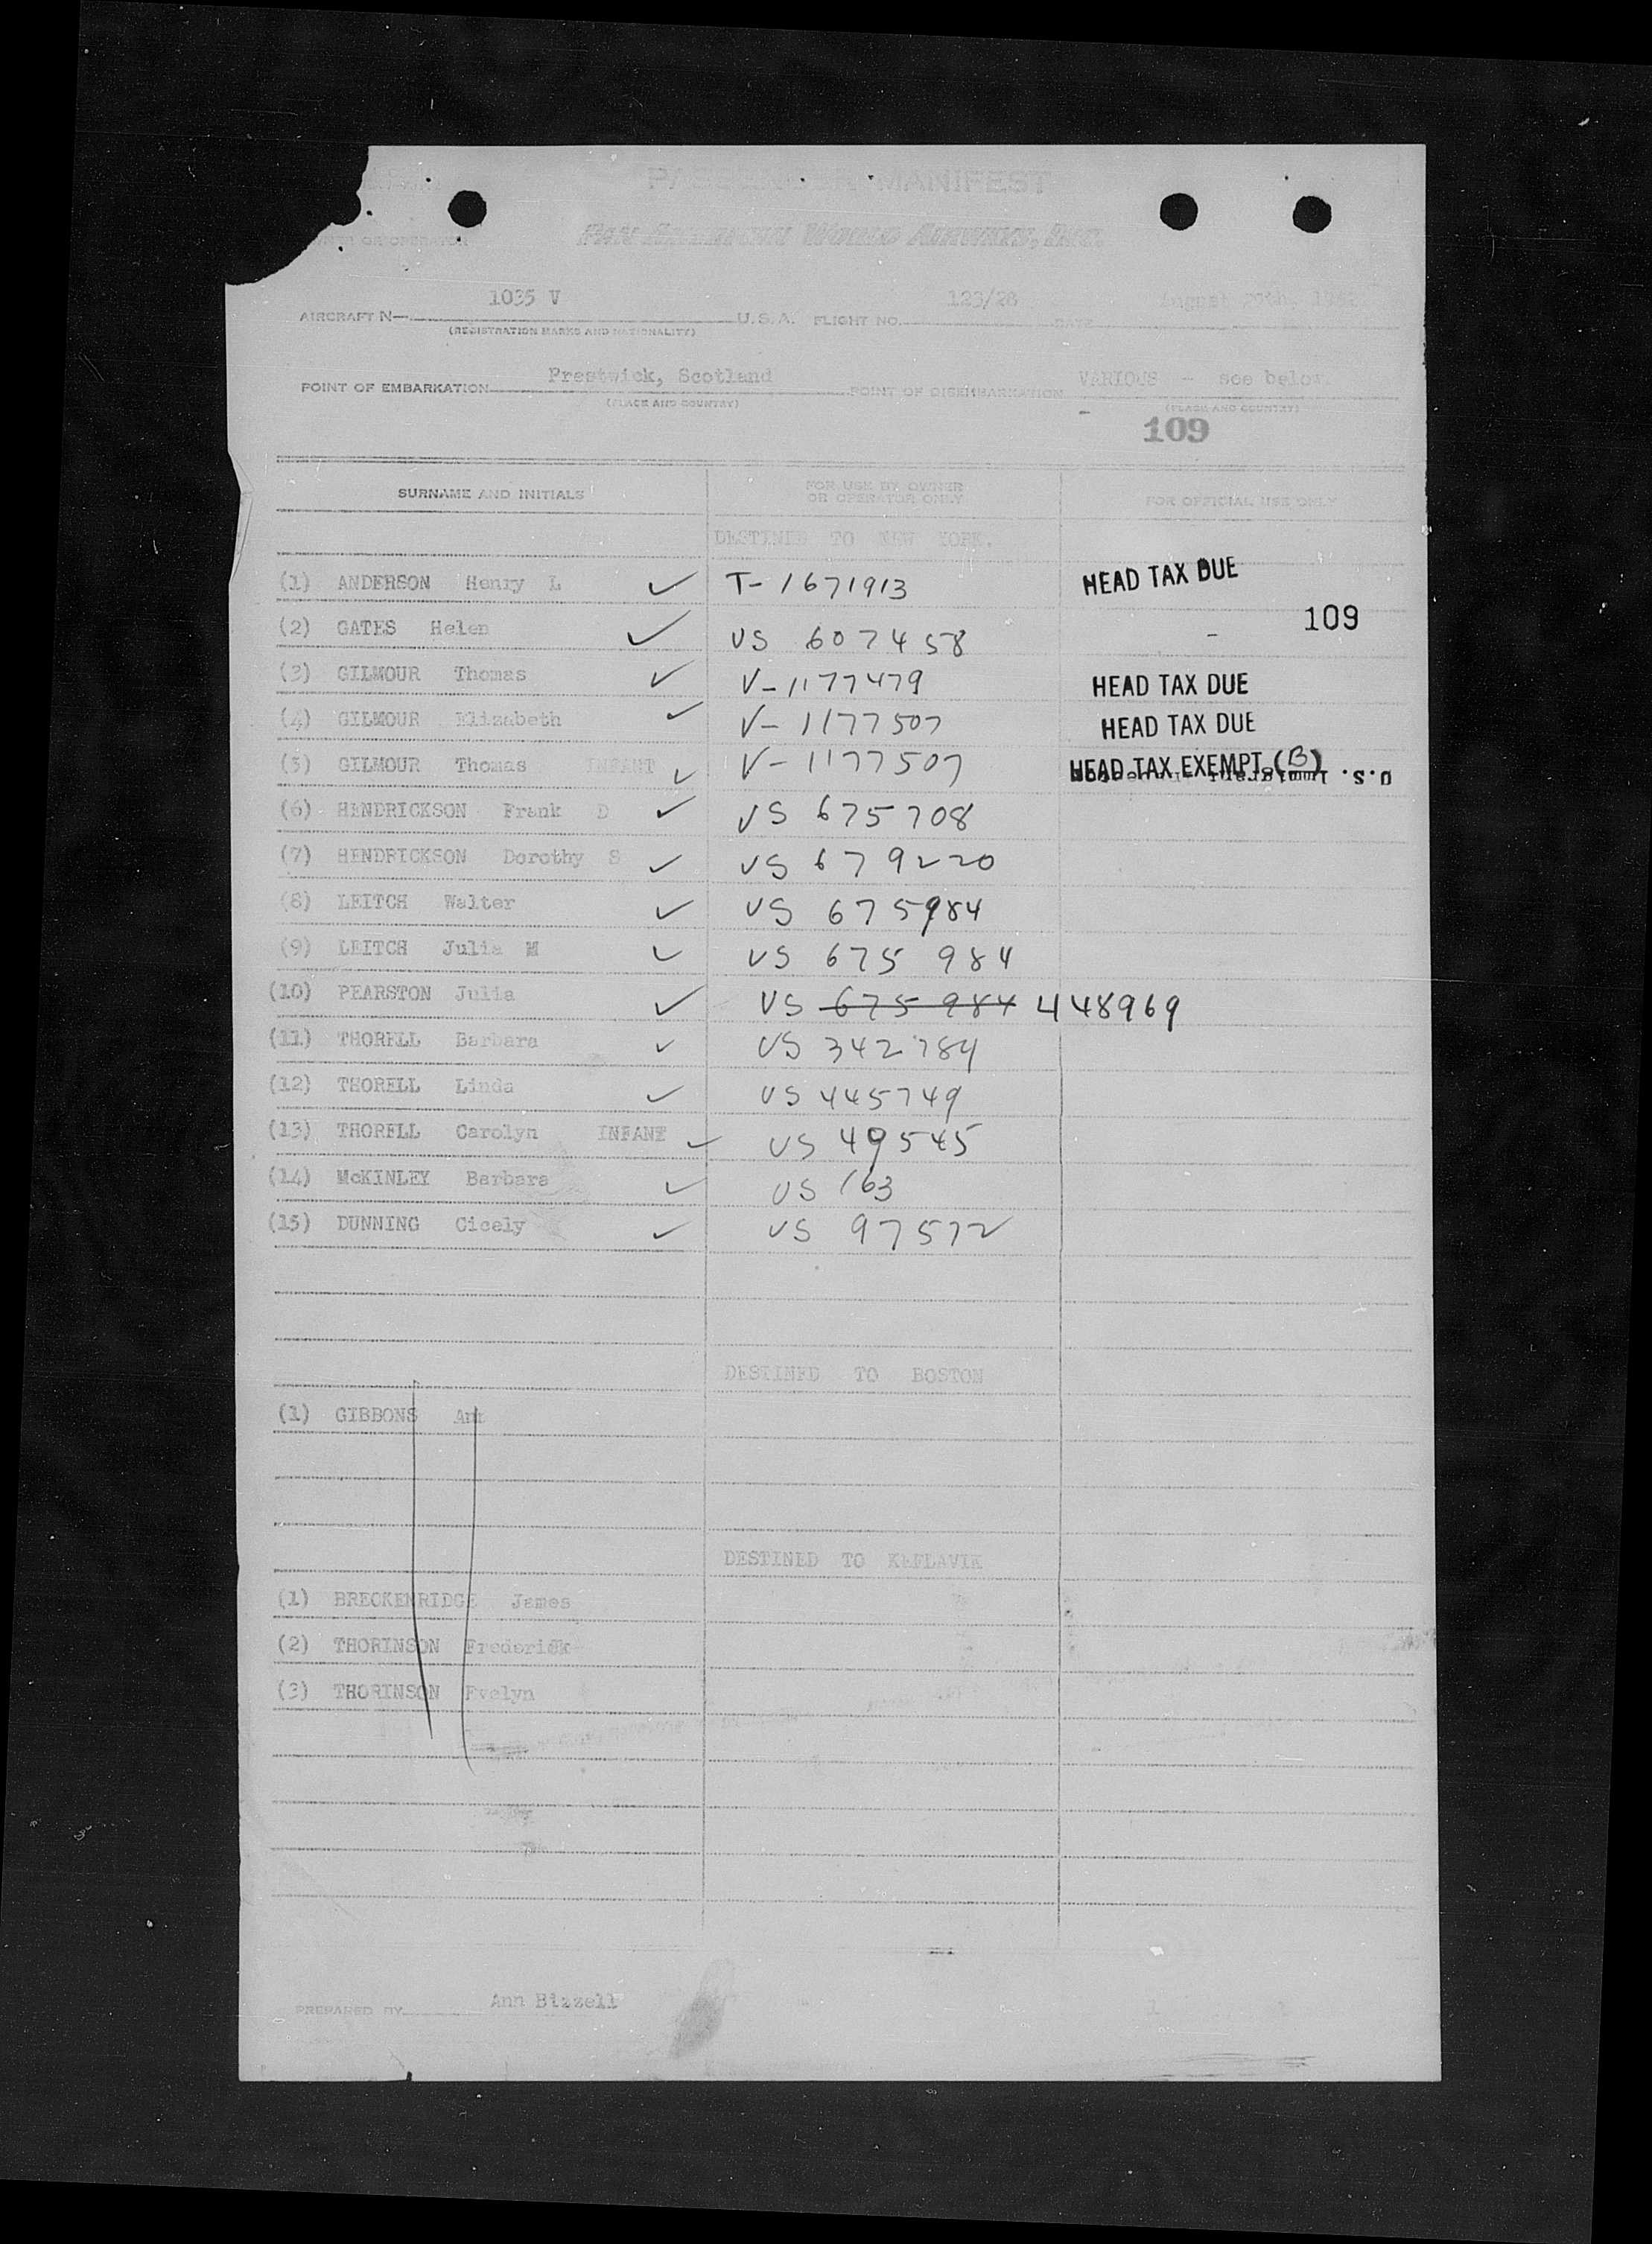 PASSENGER MANIFEST
OWNER OR OPERATOR PAN AMERICAN WORLD AIRWAYS, INC.
AIRCRAFT N— 1035 V U.S.A. FLIGHT NO. 123/28 DATE August
(REGISTRATION MARKS AND NATIONALITY)
POINT OF EMBARKATION Prestwick, Scotland POINT OF DISEMBARKATION VARIOUS - see below.
(PLACE AND COUNTRY) (PLACE AND COUNTRY)
109
SURNAME AND INITIALS FOR USE BY OWNER OR OPERATOR ONLY FOR OFFICIAL USE ONLY
DESTINED TO NEW YORK.
(1) ANDERSON Henry L ✓ T-1671913 HEAD TAX DUE
109
(2) GATES Helen ✓ US 607458 -
(3) GILMOUR Thomas ✓ V-1177479 HEAD TAX DUE
(4) GILMOUR Elizabeth ✓ V-1177507 HEAD TAX DUE
(5) GILMOUR Thomas INFANT ✓ V-1177507 HEAD TAX EXEMPT (B)
U.S. Immigrant
(6) HENDRICKSON Frank D ✓ US 675708
(7) HENDRICKSON Dorothy S ✓ US 679220
(8) LEITCH Walter ✓ US 675984
(9) LEITCH Julia M ✓ US 675 984
(10) PEARSTON Julia ✓ US 675 984 448969
(11) THORELL Barbara ✓ US 342784
(12) THORELL Linda ✓ US 445749
(13) THORELL Carolyn INFANT ✓ US 49545
(14) McKINLEY Barbara ✓ US 163
(15) DUNNING Cicely ✓ US 97572
DESTINED TO BOSTON
(1) GIBBONS Ann
DESTINED TO KEFLAVIK
(1) BRECKENRIDGE James
(2) THORINSON Frederick
(3) THORINSON Evelyn
PREPARED BY Ann Bizzell 1 1